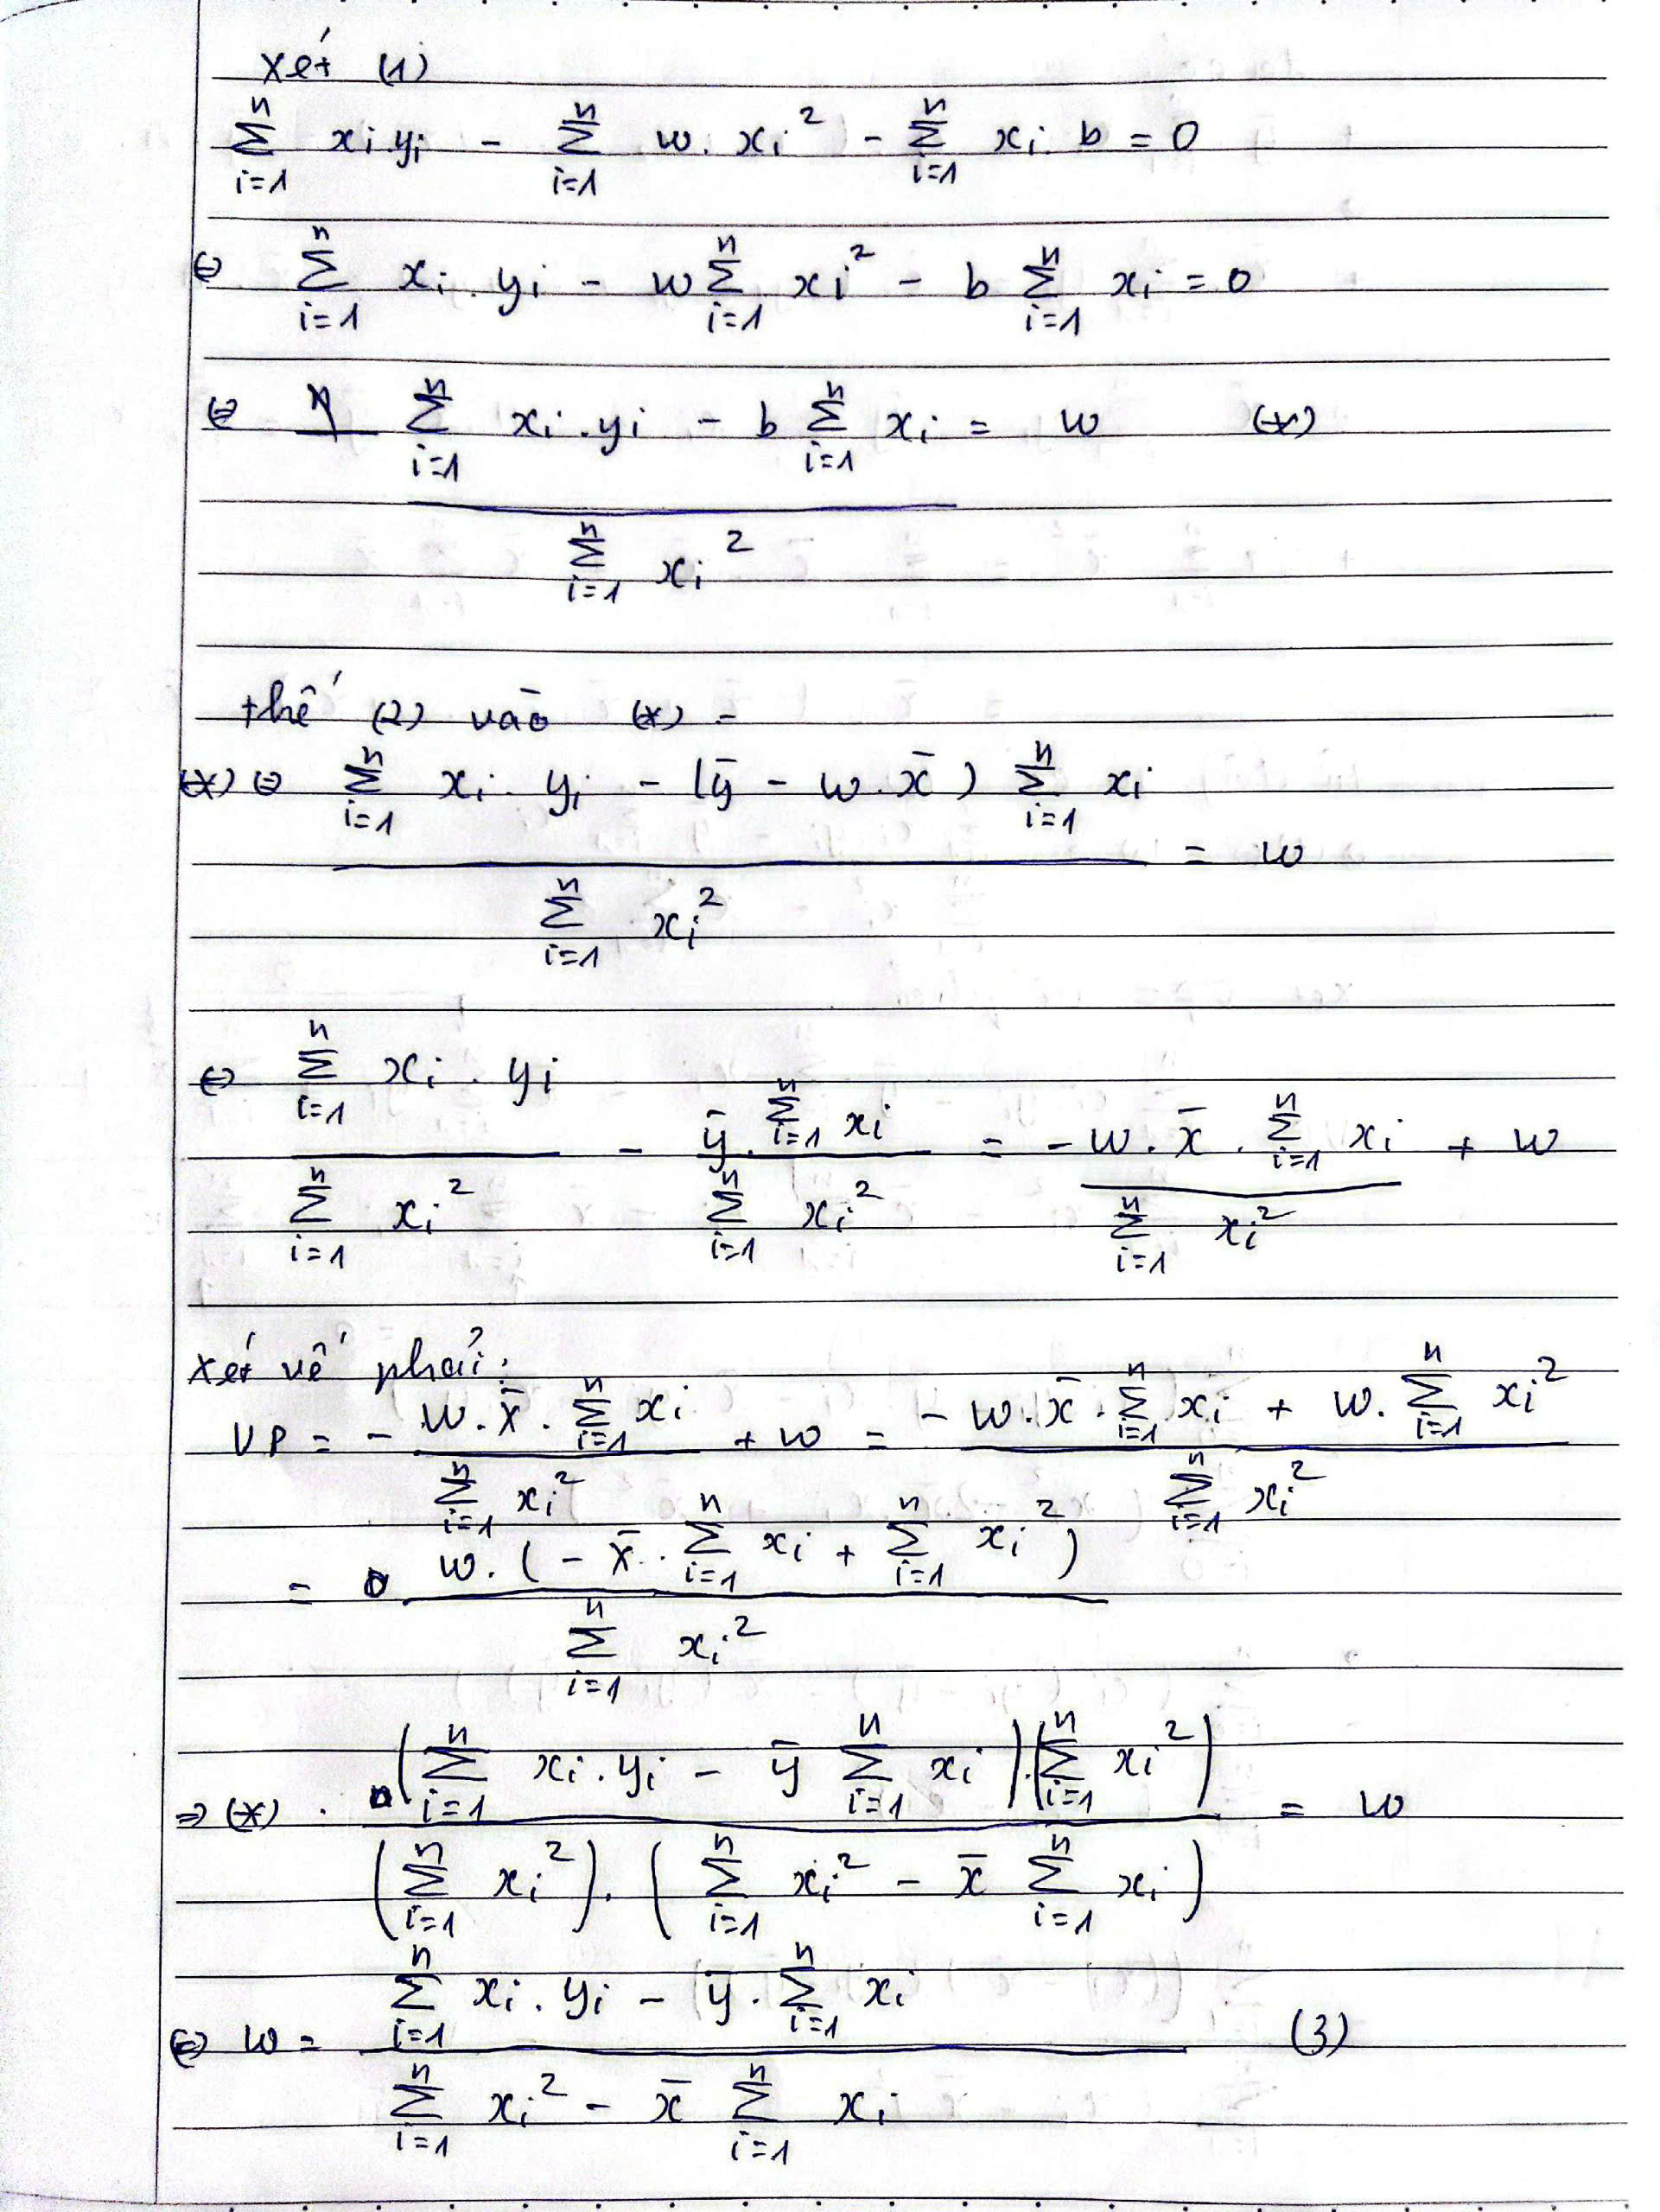 Xét (1)
$\sum_{i=1}^{n} x_i.y_i - \sum_{i=1}^{n} w.x_i^2 - \sum_{i=1}^{n} x_i.b = 0$
$\Leftrightarrow \sum_{i=1}^{n} x_i.y_i - w\sum_{i=1}^{n} x_i^2 - b\sum_{i=1}^{n} x_i = 0$
$\Leftrightarrow \frac{\sum_{i=1}^{n} x_i.y_i - b\sum_{i=1}^{n} x_i}{\sum_{i=1}^{n} x_i^2} = w$ (*)
thế (2) vào (*) -
$(*) \Leftrightarrow \frac{\sum_{i=1}^{n} x_i.y_i - (\bar{y} - w.\bar{x})\sum_{i=1}^{n} x_i}{\sum_{i=1}^{n} x_i^2} = w$
$\Leftrightarrow \frac{\sum_{i=1}^{n} x_i.y_i}{\sum_{i=1}^{n} x_i^2} - \frac{\bar{y}.\sum_{i=1}^{n} x_i}{\sum_{i=1}^{n} x_i^2} = -\frac{w.\bar{x}.\sum_{i=1}^{n} x_i}{\sum_{i=1}^{n} x_i^2} + w$
Xét vế phải:
$VP = -\frac{w.\bar{x}.\sum_{i=1}^{n} x_i}{\sum_{i=1}^{n} x_i^2} + w = \frac{-w.\bar{x}.\sum_{i=1}^{n} x_i + w.\sum_{i=1}^{n} x_i^2}{\sum_{i=1}^{n} x_i^2}$
$= \frac{w.(-\bar{x}.\sum_{i=1}^{n} x_i + \sum_{i=1}^{n} x_i^2)}{\sum_{i=1}^{n} x_i^2}$
$\Rightarrow (*) . \frac{(\sum_{i=1}^{n} x_i.y_i - \bar{y}\sum_{i=1}^{n} x_i).(\sum_{i=1}^{n} x_i^2)}{(\sum_{i=1}^{n} x_i^2).(\sum_{i=1}^{n} x_i^2 - \bar{x}\sum_{i=1}^{n} x_i)} = w$
$\Leftrightarrow w = \frac{\sum_{i=1}^{n} x_i.y_i - \bar{y}.\sum_{i=1}^{n} x_i}{\sum_{i=1}^{n} x_i^2 - \bar{x}\sum_{i=1}^{n} x_i}$ (3)